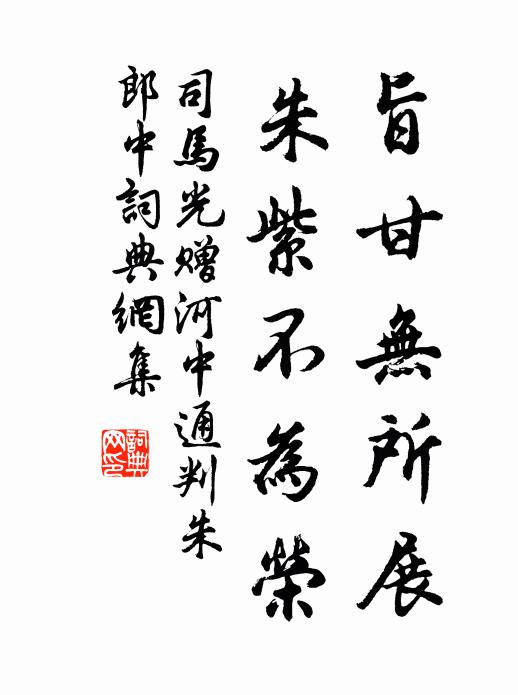 旨甘無所展
朱紫不為榮
司馬光贈河中通判朱
郎中詞典網集
詞典
网印